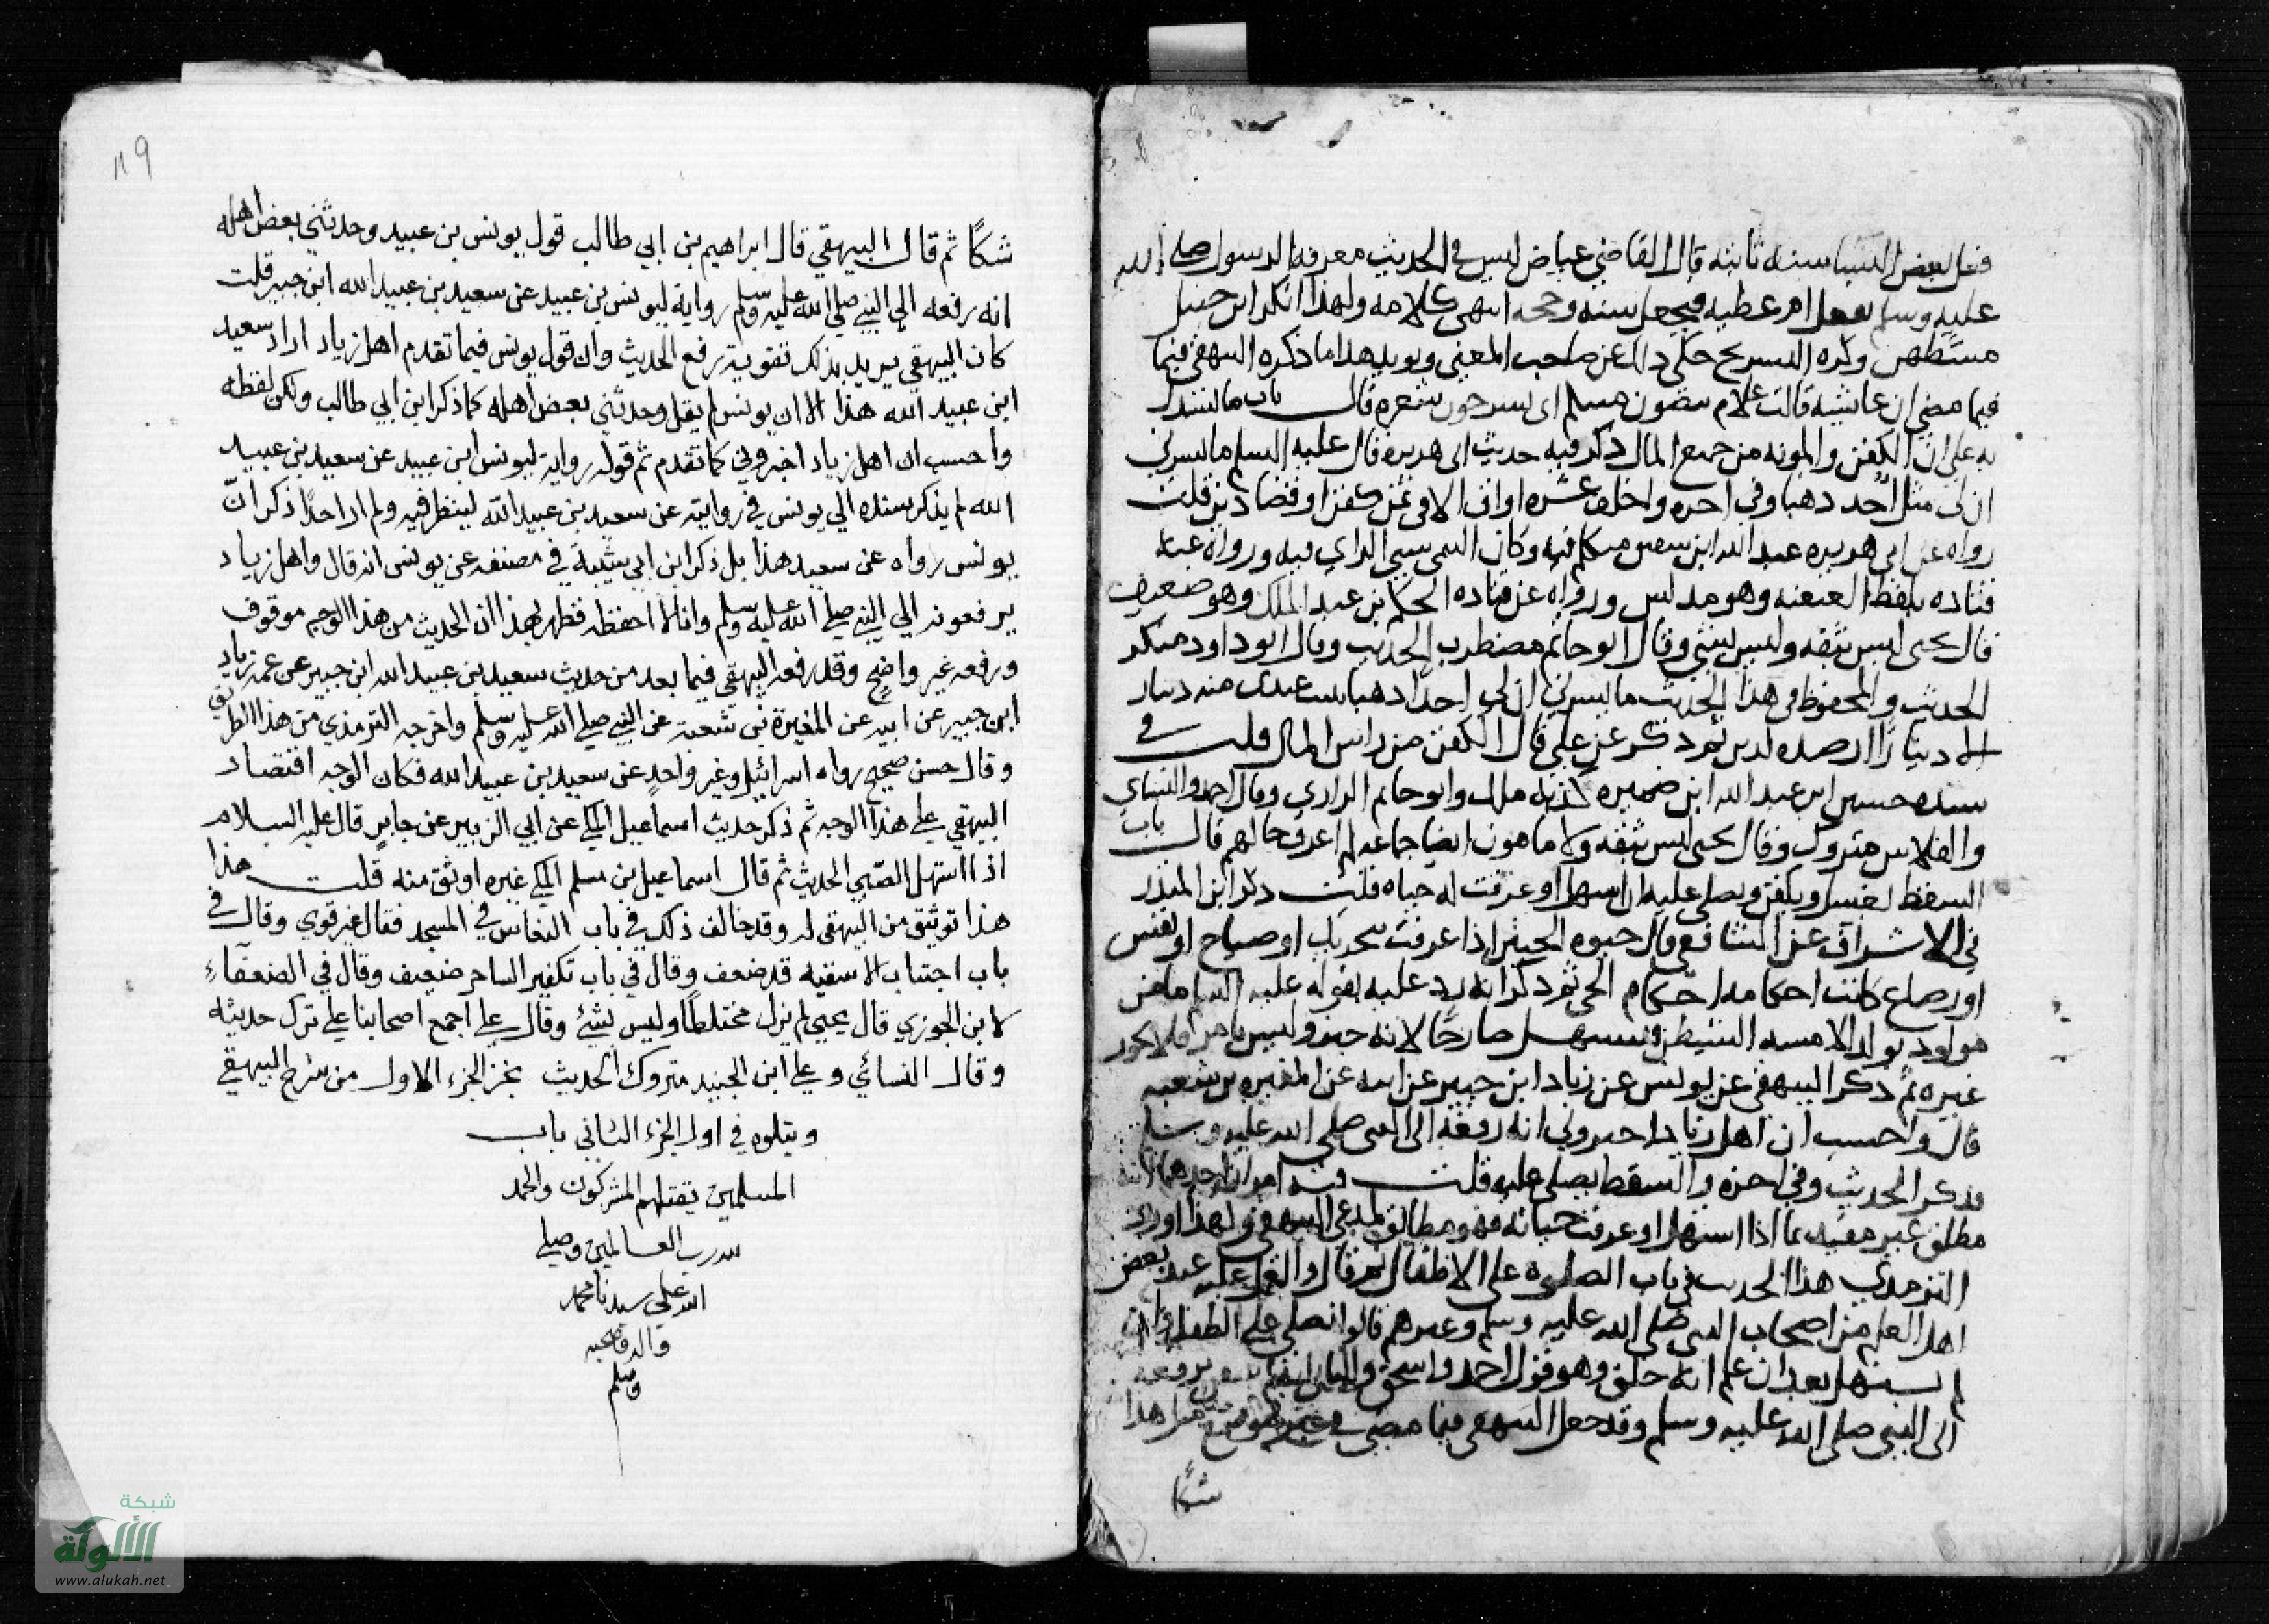 فعل بعض النسا سنه ثابته قال القاضي عياض ليس في الحديث معرفة الرسول صلى الله
عليه وسلم بفعل ام عطيه فيجعل سنه وحجه انتهى كلامه ولهذا انكر ابن حنبل
وكره التسريح حكى ذلك عن صاحب المغني ويويد هذا ما ذكره البيهقي فيما
فيما مضى ان عايشه قالت علام تنصون ميتكم اى تسرحون شعره قال باب ما يستدل
به على ان الكفن والمونه من جميع المال ذكر فيه حديث ابي هريره قال عليه السلم ما يسرني
ان لي مثل احد ذهبا وفي اخره
رواه عن ابي هريره عبد الله ابن متكلم فيه وكان ابن سيرين سيئ الراي فيه ورواه عنه
قتاده بلفظ العنعنه وهو مدلس ورواه عن قتاده الحكم بن عبد الملك وهو ضعيف
قال يحيى ليس بثقه وليس بشي وقال ابو حاتم مضطرب الحديث وقال ابو داود منكر
الحديث والمحفوظ في هذا الحديث ما يسرني ان لي احدا ذهبا يبيت عندى منه دينار
الا دينارًا ارصده لدين ثم ذكر عن علي قال الكفن من راس المال قلت في
سنده حسين ابن عبد الله ابن ضميره كذبه ملك وابو حاتم الرازي وقال احمد والنساي
والفلاس متروك وقال يحيى ليس بثقه ولا مامون ايضا جماعه لم اعرف حالهم قال باب
السقط يغسل ويكفن ويصلى عليه ان استهل او عرفت له حياه قلت ذكر ابن المنذر
في الاشراف عن الشافعي قال حيوه الجنين اذا عرفت بتحريك او صياح او نفس
او رضاع كانت احكامه احكام الحي ثم ذكر انه رد عليه بقوله عليه السلم ما من
مولود يولد الا مسه الشيطن فيستهل صارخًا لانه خبر وليس بامر فلا يكون
غيره ثم ذكر البيهقي عن يونس عن زياد ابن جبير عن ابيه عن المغيره بن شعبه
قال واحسب ان اهل زياد اخبروني انه رفعه الى النبي صلى الله عليه وسلم
فذكر الحديث وفي اخره والسقط يصلى عليه قلت فيه امران احدهما انه
مطلق غير مقيد بما اذا استهل او عرفت حياته فهو مطابق لمدعى البيهقي ولهذا اورد
الترمذي هذا الحديث في باب الصلوه على الاطفال ثم قال والعمل عليه عند بعض
اهل العلم من اصحاب النبي صلى الله عليه وسلم وغيرهم قالوا نصلي على الطفل وان
لم يستهل بعد ان علم انه خلق وهو قول احمد واسحق والثاني
الى النبي صلى الله عليه وسلم وقد جعل البيهقي فيما مضى في غير موضع مثل هذا
شكًا
١١٩
شكًا ثم قال البيهقي قال ابراهيم بن ابي طالب قول يونس بن عبيد وحدثني بعض اهله
انه رفعه الي النبي صلي الله عليه وسلم رواية ليونس بن عبيد عن سعيد بن عبيد الله ابن جبير قلت
كان البيهقي يريد بذلك تقوية رفع الحديث وان قول يونس فيما تقدم اهل زياد اراد سعيد
ابن عبيد الله هذا الا ان يونس لم يقل وحدثني بعض اهله كما ذكر ابن ابي طالب ولكن لفظه
واحسب ان اهل زياد اخبروني كما تقدم ثم قوله رواية ليونس ابن عبيد عن سعيد بن عبيد
الله لم يذكر سنده الي يونس في روايته عن سعيد بن عبيد الله لينظر فيه ولم ار احدًا ذكر انّ
يونس رواه عن سعيد هذا بل ذكر ابن ابي شيبة في مصنفه عن يونس انه قال واهل زياد
يرفعونه الي النبي صلي الله عليه وسلم وانا لا احفظه فظهر بهذا ان الحديث من هذا الوجه موقوف
ورفعه غير واضح وقد رفعه البيهقي فيما بعد من حديث سعيد بن عبيد الله ابن جبير عن عمه زياد
ابن جبير عن ابيه عن المغيرة بن شعبة عن النبي صلي الله عليه وسلم واخرجه الترمذي من هذا الطريق
وقال حسن صحيح رواه اسرائيل وغير واحد عن سعيد بن عبيد الله فكان الوجه اقتصاد
البيهقي علي هذا الوجه ثم ذكر حديث اسماعيل المكي عن ابي الزبير عن جابر قال عليه السلام
اذا استهل الصبي الحديث ثم قال اسماعيل بن مسلم المكي غيره اوثق منه قلت هذا
هذا توثيق من البيهقي له وقد خالف ذلك في باب النعاس في المسجد فقال غير قوي وقال في
باب اجتناب الاسقيه قد ضعف وقال في باب تكفير الساحر ضعيف وقال في الضعفاء
لابن الجوزي قال يحيي لم يزل مختلطًا وليس بشئ وقال علي اجمع اصحابنا علي ترك حديثه
وقال النسائي وعلي ابن الجنيد متروك الحديث نجز الجزء الاول من شرح البيهقي
ويتلوه في اول الجزء الثاني باب
المسلمين يقتلهم المشركون والحمد
لله رب العالمين وصلي
الله علي سيدنا محمد
واله وصحبه
وسلم
شبكة
الألوكة
www.alukah.net